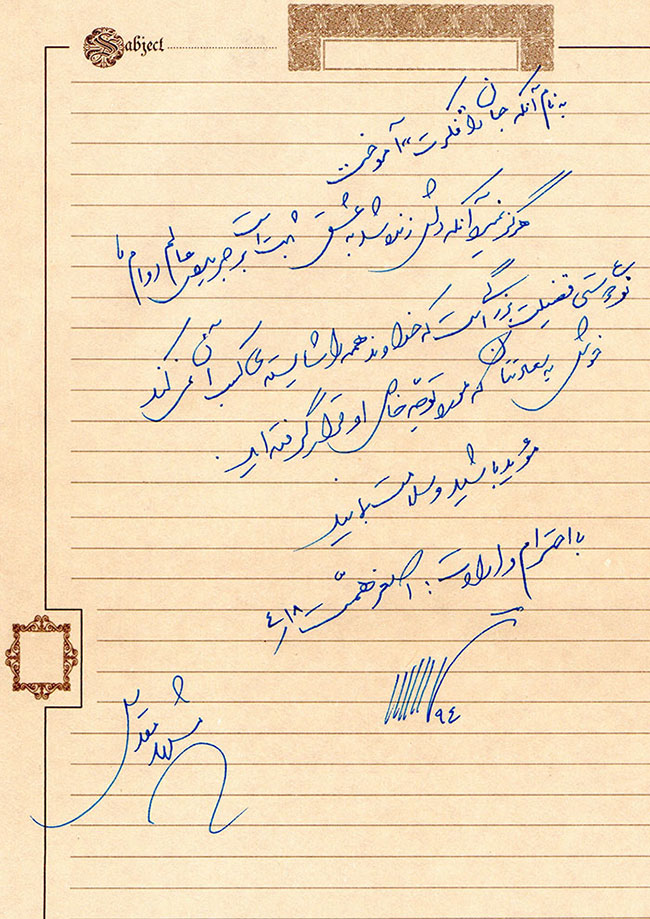 Sabject
به نام آنکه جان را "فکرت" آموخت
هرگز نمیرد آنکه دلش زنده شد به عشق ثبت است بر جریده‌ی عالم دوام ما
نوع‌دوستی فضیلت بزرگی است که خداوند همه را شایسته‌ی کسب آن نمی‌کند
خوش به سعادتتان که مورد توجّه خاص او قرار گرفته‌اید.
مؤید باشید و سلامت بمانید
با احترام و ارادت: اصغر همّت ٤/١٨
٩٤
مشهد مقدس